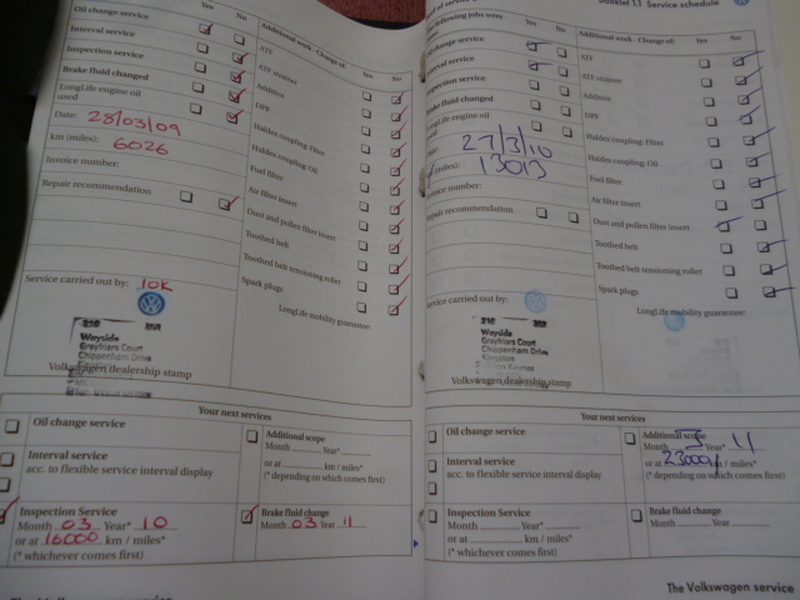 Yes No
Oil change service
Interval service
Inspection service
Brake fluid changed
LongLife engine oil
used
Date: 28/03/09
km (miles): 6026
Invoice number:
Repair recommendation
Service carried out by: 10K
Wayside
Greyfriars Court
Chippenham Drive
Volkswagen dealership stamp
Additional work - Change of:
Yes No
ATF
ATF strainer
Additive
DPF
Haldex coupling: Filter
Haldex coupling: Oil
Fuel filter
Air filter insert
Dust and pollen filter insert
Toothed belt
Toothed belt tensioning roller
Spark plugs
LongLife mobility guarantee:
Your next services
Oil change service
Interval service
acc. to flexible service interval display
Inspection Service
Month 03 Year* 10
or at 16000 km / miles*
(* whichever comes first)
Additional scope
Month Year*
or at km / miles*
(* depending on which comes first)
Brake fluid change
Month 03 Year 11
Booklet 1.1 Service schedule
following jobs were
Yes No
change service
service
Inspection service
Brake fluid changed
LongLife engine oil
27/3/10
(miles): 13013
Invoice number:
Repair recommendation
Service carried out by:
Wayside
Greyfriars Court
Chippenham Drive
Kingston
Volkswagen dealership stamp
Additional work - Change of:
Yes No
ATF
ATF strainer
Additive
DPF
Haldex coupling: Filter
Haldex coupling: Oil
Fuel filter
Air filter insert
Dust and pollen filter insert
Toothed belt
Toothed belt tensioning roller
Spark plugs
LongLife mobility guarantee:
Your next services
Oil change service
Interval service
acc. to flexible service interval display
Inspection Service
Month Year*
or at km / miles*
(* whichever comes first)
Additional scope
Month 3 Year* 11
or at 23000 km / miles*
(* depending on which comes first)
Brake fluid change
Month Year
The Volkswagen service